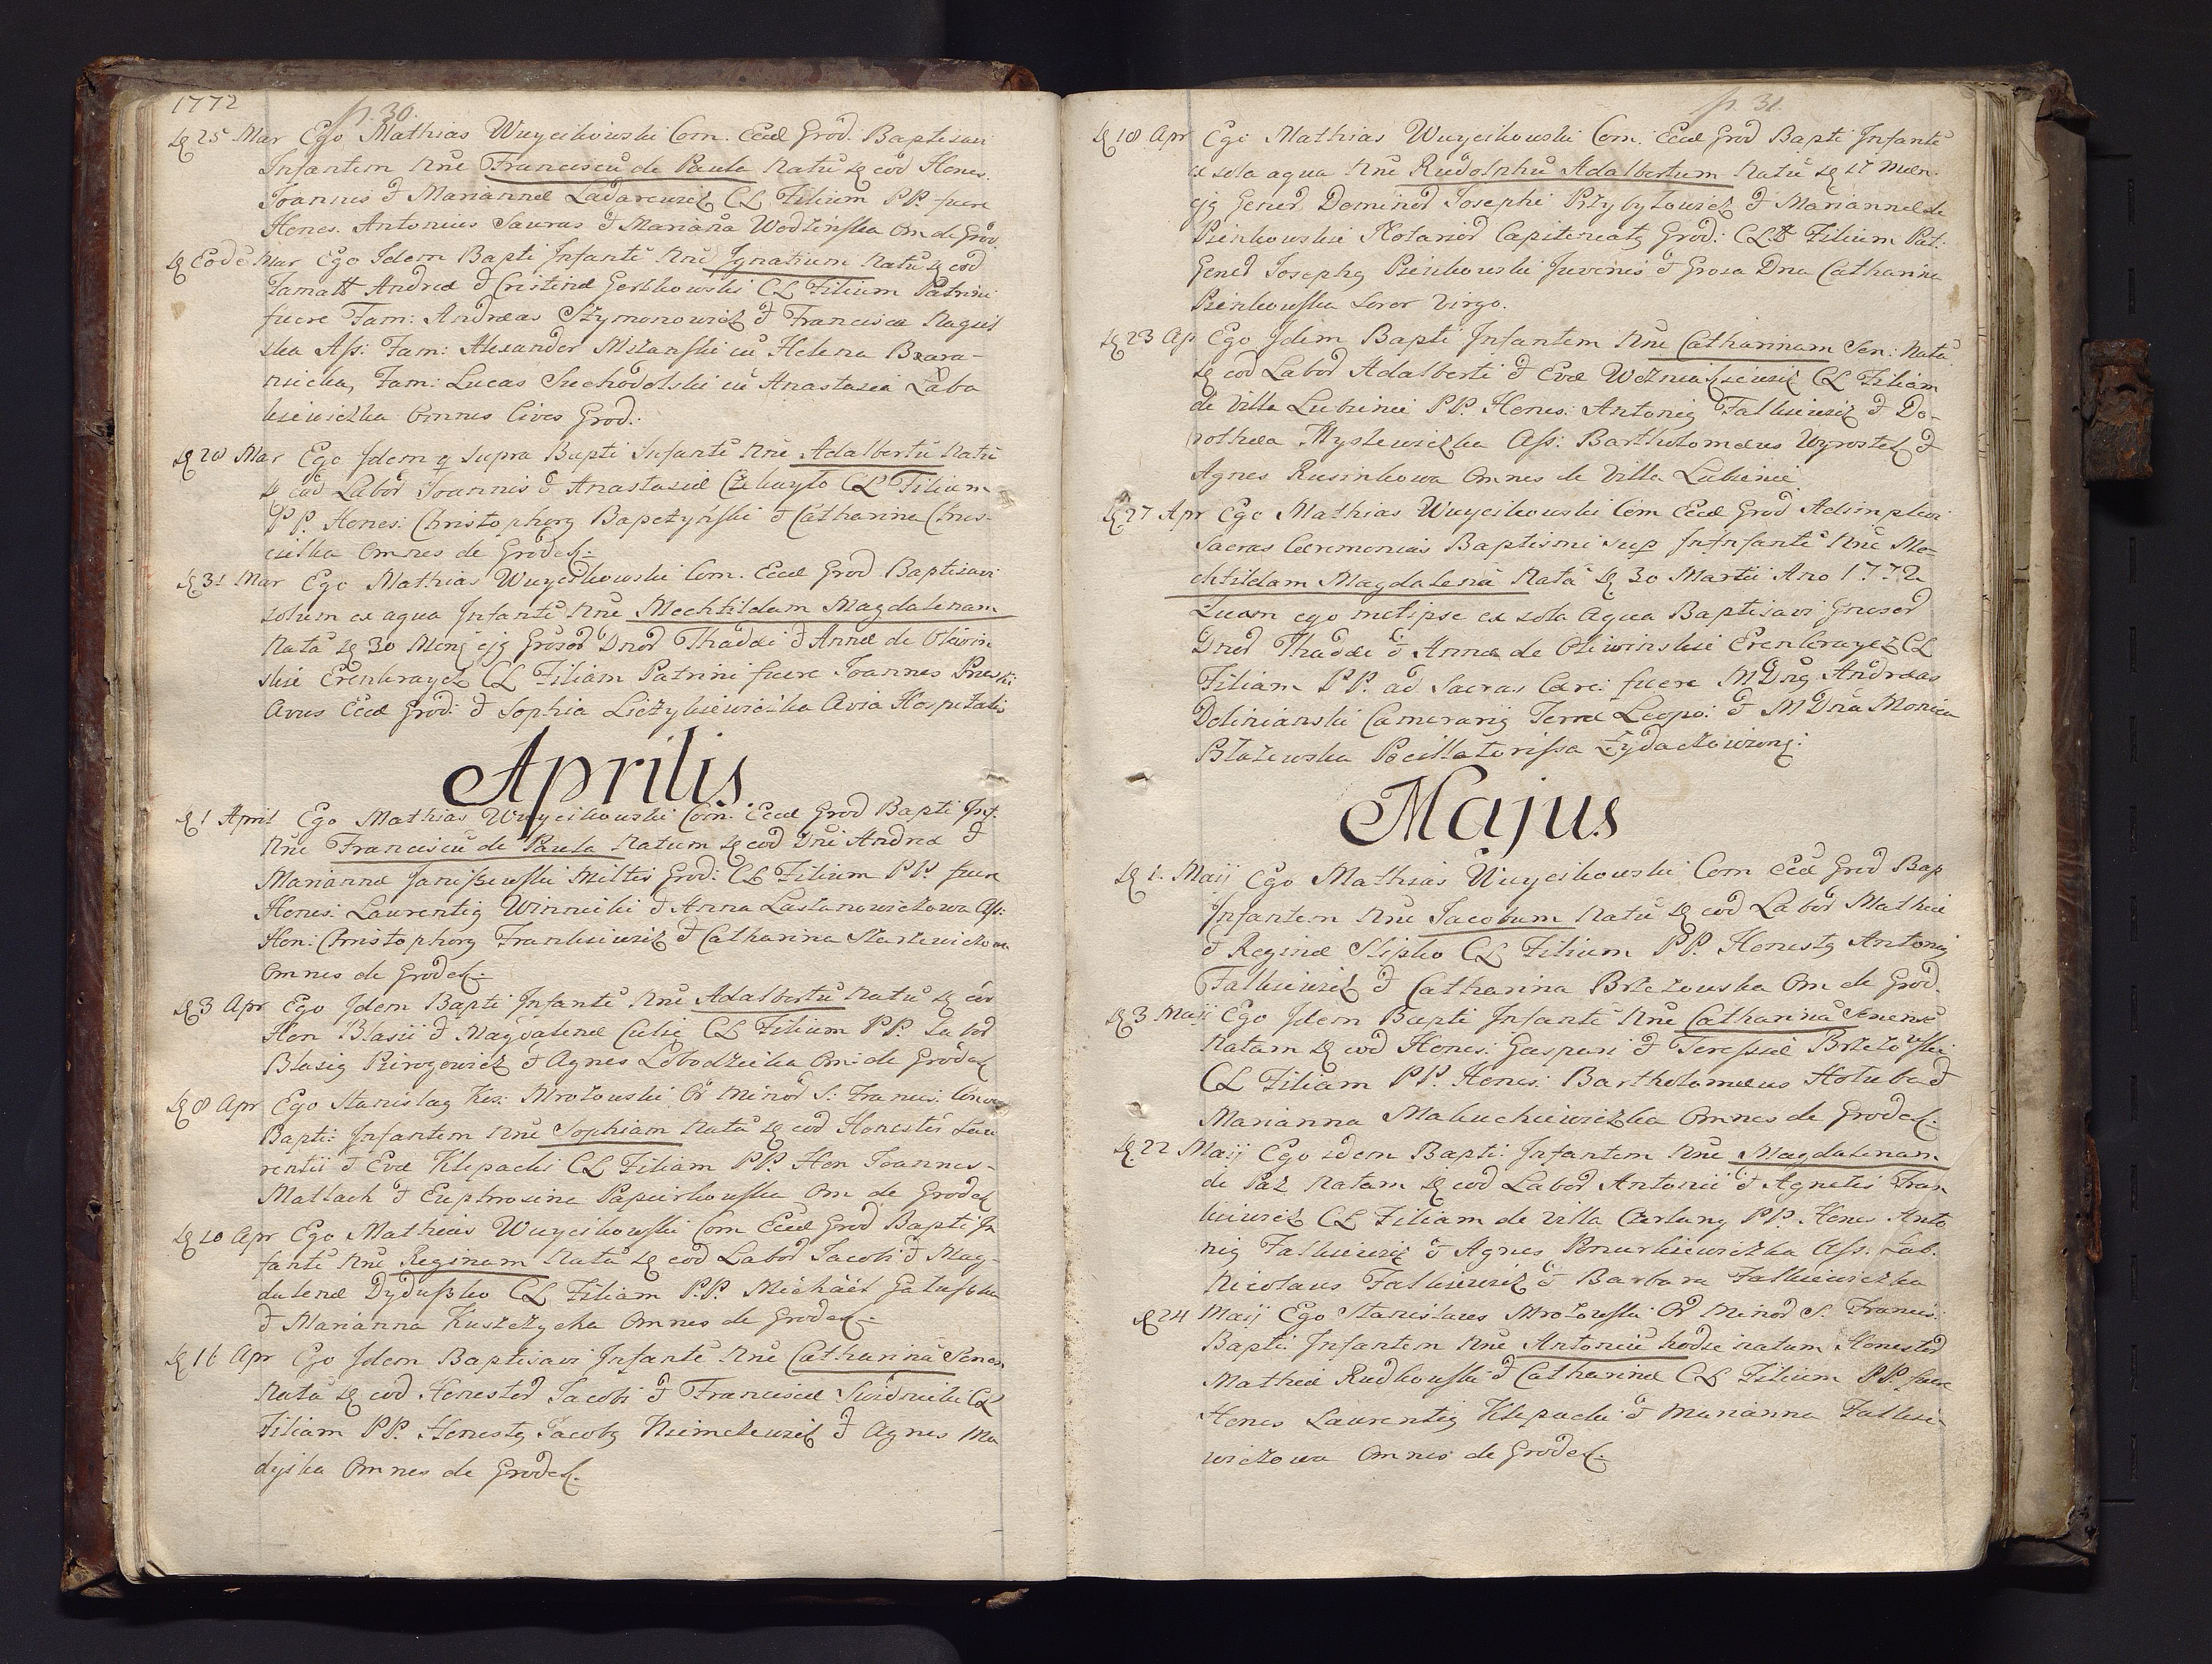 1772
p. 30.
D 25 Mar Ego Mathias Wuycikowski Com. Eccl Grod. Baptisavi
Infantem Nne Franciscu de Paula Natu D eod Hones.
Joannis & Mariannæ Ladarewicz CL Filium PP. fuere
Hones. Antonius Sauras & Mariana Wodzinska Om de Grod.
D Eode Mar Ego Idem Bapti Infante Nne Ignatium Natu D eod
Famatt Andreæ & Cristinæ Gorkowski CL Filium Patrini
fuere Fam: Andreas Szymonowicz & Francisca Nagus
ska Ass: Fam: Alexander Mizanski cu Helena Bxara-
nicka, Fam: Lucas Suchodolski cu Anastazia Laba
kiewiczka Omnes Cives Grod.:
D 28 Mar Ego Idem q supra Bapti Infante Nne Adalbertu Natu
D eod Labor Joannis & Anastasiæ Czekayło CL Filium
PP. Hones: Christophorg Bapczynski & Catharina Chus-
cielka Omnes de Grodek:
D 31 Mar Ego Mathias Wuycikowski Com. Eccl Grod Baptisavi
solum ex aqua Infante Nne Mechtildam Magdalenam
Nata D 30 Mens ejg Gnosor Dnor Thaddæi & Annæ de Oliwin
skie Erenkraycz CL Filiam Patrini fuere Joannes Prusski
Avus Eccl Grod: & Sophia Liczykiewiczka Avia Hospitalis
Aprilis
D 1 April Ego Mathias Wuycikowski Com. Eccl Grod Bapti Inf.
Nne Franciscu de Paula Natum D eod Dni Andreæ &
Mariannæ Janiszewski Miltis Grod: CL Filium PP. fuere
Hones: Laurentig Winnicki & Anna Laskanowiczowa Ass:
Hon: Christophorg Frankiewicz & Catharina Starkiewiczowa
Omnes de Grodek:
D 3 Apr Ego Idem Bapti Infante Nne Adalbertu Natu D eod
Hon Blasii & Magdalenæ Culig CL Filium PP. Labor
Blasig Pirogowicz & Agnes Lobodzicka Om: de Grodek
D 8 Apr Ego Stanislag Kos: Mrozowski Or Minor S: Francis: Conv.
Bapti: Infantem Nne Sophiam Nata D eod Honestor Lau
rentii & Evæ Klepacki CL Filiam PP. Hon Joannes
Matlach & Euphrosina Papierkowska Om de Grodek
D 10 Apr Ego Mathias Wuycikowski Com Eccl Grod Bapti In
fante Nne Reginam Nata D eod Labor Jacobi & Mag-
dalenæ Dydussko CL Filiam P.P. Michael Galuszka
& Marianna Kuszczycka Omnes de Grodek:
D 16 Apr Ego Idem Baptisavi Infante Nne Catharina Senen
Nata D eod Honestor Jacobi & Franciscæ Swidnicki CL
Filiam PP. Honestg Jacobg Niemczewicz & Agnes Ma
dyska Omnes de Grodek.
p. 31.
D 18 Apr Ego Mathias Wuycikowski Com. Eccl Grod Bapti Infante
ex sola aqua Nne Rudolphu Adalbertum Natu D 17 Mens.
ejg Generd Dominor Josephi Przybyłowicz & Mariannæ de
Pienkowskie Notarior Capiteneatg Grod: CL Filium Pat.
Gener Josephg Pienkowski Juvenis & Grosa Dna Catharina
Pienkowska Soror Virgo.
D 23 Ap Ego Idem Bapti Infantem Nne Catharinam Sen: Nata
D eod Labor Adalberti & Evæ Wozniakiewicz CL Filiam
de Villa Lubienie PP. Hones: Antonig Falkiewicz & Do-
rothea Myslewiczka Ass: Bartholomæus Wyrostek &
Agnes Rusinkowa Omnes de Villa Lubienie
D 27 Apr Ego Mathias Wuycikowski Com Eccl Grod Adimplevi
Sacras Cæremonias Baptismi sup Infante Nne Me-
chtildam Magdalena Nata D 30 Martii Ano 1772
Quam ego metipse ex sola Aqua Baptisavi Gnesor
Dnor Thaddæi & Annæ de Oliwinskie Erenkraycz CL
Filiam PP. ad Sacras Cære: fuere M Dng Andreas
Dolinianski Camerarig Terræ Leopo: & M Dna Monica
Błażewska Pocillatorissa Zydaczowieng:
Majus
D 1. Maij Ego Mathias Wuycikowski Com Eccl Grod Bap
Infantem Nne Jacobum Natu D eod Labor Mathiæ
& Reginæ Slipko CL Filium PP. Honestg Antonig
Falkiewicz & Catharina Brzezowska Om de Grod.
D 3 Maij Ego Idem Bapti Infante Nne Catharina Senens
Natam D eod Hones: Gaspari & Teressiæ Brzezowski
CL Filiam PP. Hones: Bartholomæus Hołuba &
Marianna Makuchiewiczka Omnes de Grodek:
D 22 Maij Ego idem Bapti: Infantem Nne Magdalenam
de Paz Natam D eod Labor Antonii & Agnetis Fran
kiewicz CL Filiam de Villa Czerlany PP. Hones Anto
nig Falkiewicz & Agnes Ponurkiewiczka Ass: Lab.
Nicolaus Falkiewicz & Barbara Falkiewiczka
D 24 Maij Ego Stanislaus Mrozowski Or Minor S. Francis:
Bapti: Infantem Nne Antoniu hodie natum Honestor
Mathiæ Rudkowski & Catharinæ CL Filium PP. fuere
Hones Laurentig Klepacki & Marianna Falkie
wiczowa Omnes de Grodek: